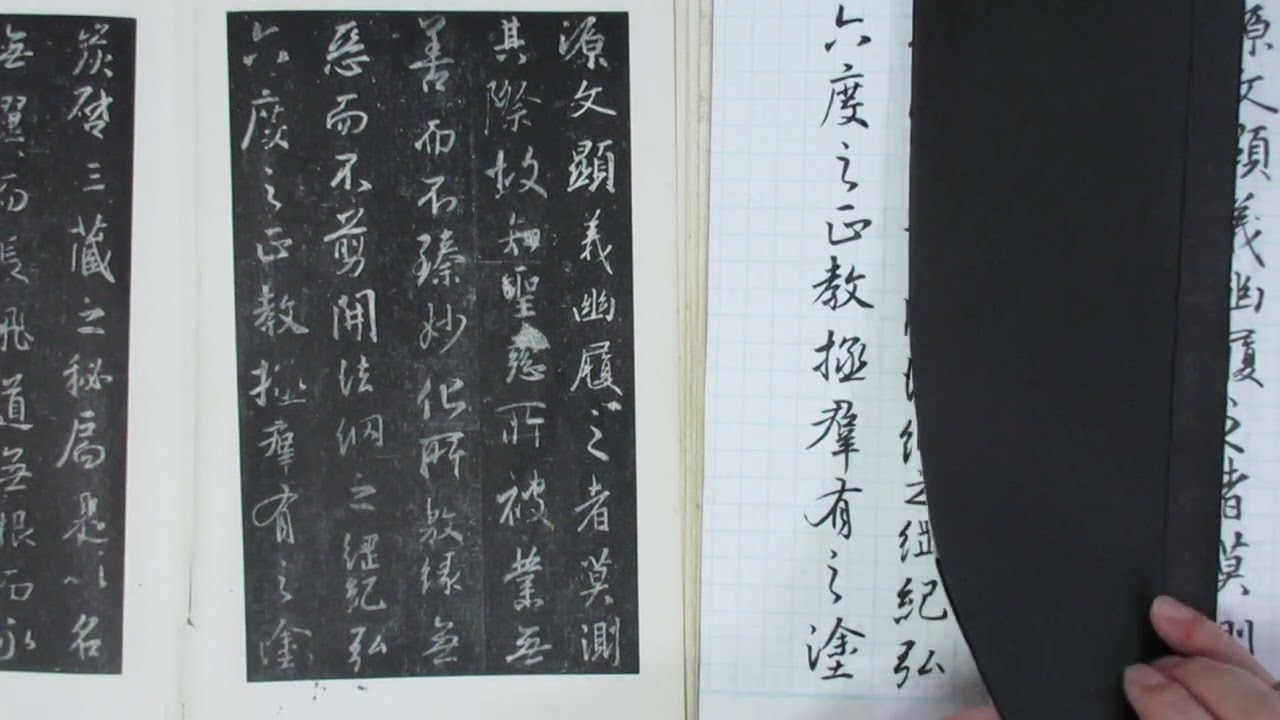 源文顯義幽履之者莫測
其際故知聖慈所被業無
善而不臻妙化所敷緣無
惡而不剪開法網之綱紀弘
六度之正教拯群有之塗
炭啓三藏之秘扃是以名
無翼而長飛道無根而永
源文顯義幽履之者莫測
之綱紀弘
六度之正教拯群有之塗